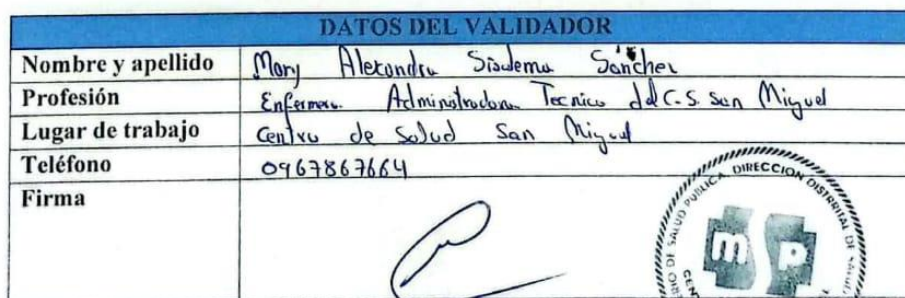 DATOS DEL VALIDADOR
Nombre y apellido Mary Alexandra Sisalema Sánchez
Profesión Enfermera. Administradora Tecnico del C.S. San Miguel
Lugar de trabajo Centro de Salud San Miguel
Teléfono 0967867664
Firma
DIRECCION DISTRITAL DE SALUD
DE SALUD PUBLICA
msp